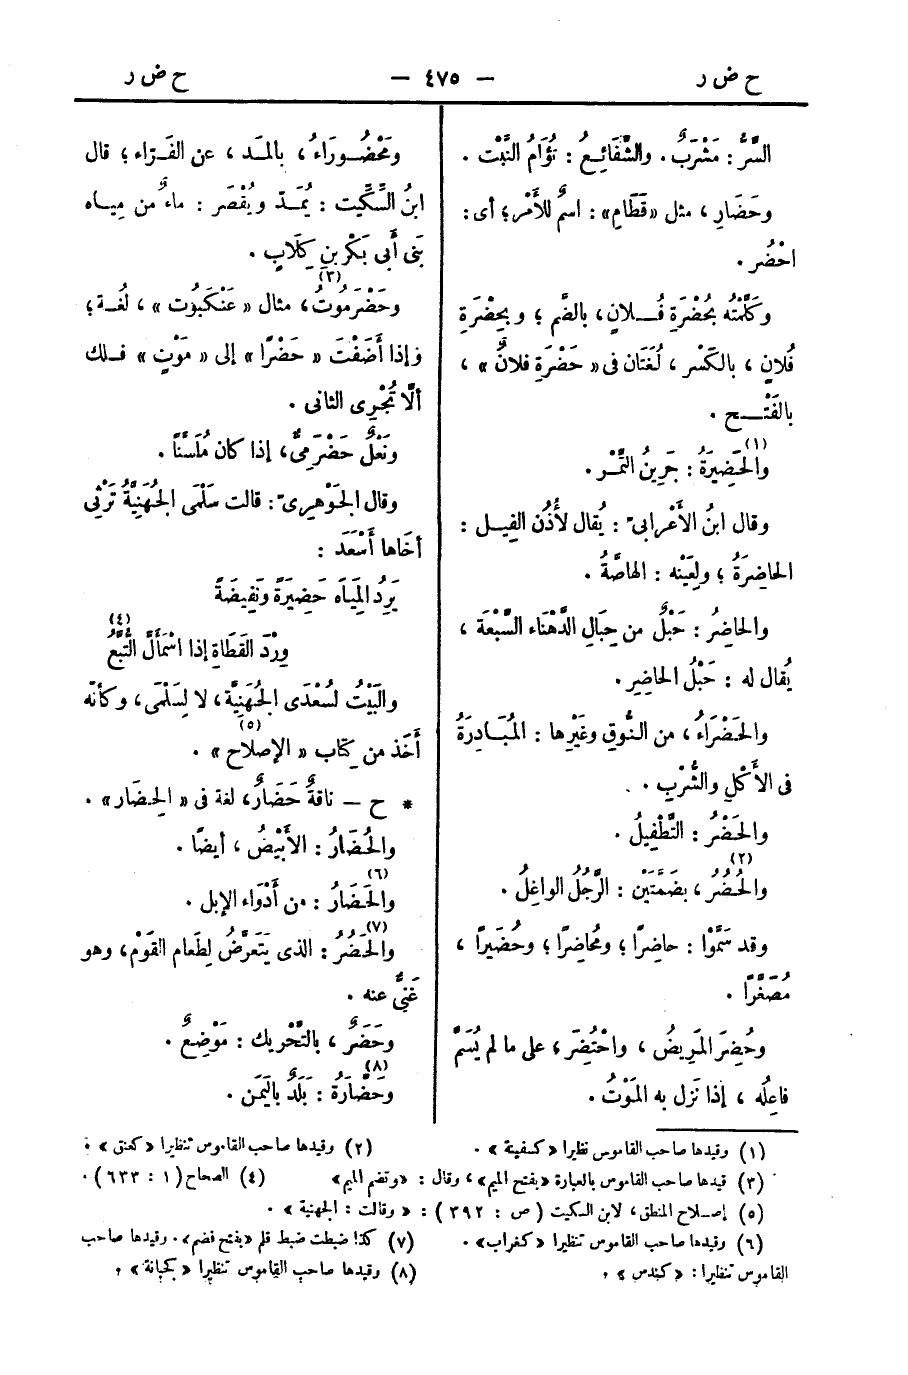 ح ض ر — ٤٧٥ — ح ض ر
السَّرُّ : مَشْرَبٌ . والشَّفَائِعُ : تُؤَامُ النَّبْت .
وحَضَارِ ، مثل «قَطَامِ» : اسمٌ للأَمْر ؛ أى :
احْضُر .
وكَلَّمْتُه بحُضْرَةِ فُلانٍ ، بالضَّم ؛ وبِحِضْرَةِ
فُلانٍ ، بالكَسْر ، لُغَتَان فى « حَضْرَةِ فلانٌ » ،
بالفَتْح .
والحَضِيرَةُ (١) : جَرِينُ التَّمْر .
وقال ابنُ الأَعْرابىّ : يُقال لأُذُن الفِيل :
الحاضِرَةُ ؛ ولِعَيْنه : الهاصَّةُ .
والحاضِرُ : حَبْلٌ من حِبَالِ الدَّهْناء السَّبْعَة ،
يُقال له : حَبْلُ الحاضِر .
والحَضْرَاءُ ، من النُّوقِ وغَيْرِها : المُبَادِرَةُ
فى الأَكْلِ والشُّرْبِ .
والحَضْرُ : التَّطْفِيلُ .
والحُضُرُ (٢) ، بضَمَّتَيْن : الرَّجُلُ الواغِلُ .
وقد سَمَّوْا : حاضِرًا ؛ ومُحاضِرًا ؛ وحُضَيرًا ،
مُصَغَّرًا .
وحُضِرَ المَرِيضُ ، واحْتُضِرَ ، على ما لم يُسَمَّ
فاعِلُه ، إذا نَزل به المَوْتُ .
ومَحْضُورَاءُ ، بالمَد ، عن الفَرّاء ؛ قال
ابنُ السِّكِّيت : يُمَدّ ويُقْصَر : ماءٌ من مِيَاه
بَنى أَبى بَكْرِ بنِ كِلَابٍ .
وحَضْرَمُوتُ (٣) ، مثال « عَنْكَبُوت » ، لُغَة ؛
وإذا أَضَفْتَ « حَضْرًا » إلى « مَوْتٍ » فلك
ألَّا تُجْرِى الثانى .
ونَعْلٌ حَضْرَمِىٌّ ، إذا كان مُلَسَّنًا .
وقال الجَوْهرِىّ : قالت سَلْمَى الجُهَنِيَّةُ تَرْثِى
أَخَاها أَسْعَدَ :
يَرِدُ المِيَاهَ حَضِيرَةً ونَفِيضَةً
وِرْدَ القَطَاةِ إذا اسْمَأَلَّ التُّبَّعُ (٤)
والبَيْتُ لسُعْدَى الجُهَنِيَّة ، لا لِسَلْمَى ، وكأنّه
أَخَذ من كِتاب « الإصلاح » (٥) .
* ح — ناقةٌ حَضَارٌ ، لغة فى « الحِضَار » .
والحُضَارُ : الأَبْيَضُ ، أيضًا .
والحَضَارُ (٦) : من أَدْوَاء الإبل .
والحَضُرُ (٧) : الذى يَتَعَرَّضُ لِطَعام القَوْم ، وهو
غَنِىٌّ عنه .
وحَضَرٌ ، بالتَّحْريك : مَوْضِعٌ .
وحَضْارَةُ (٨) : بَلَدٌ باليَمَن .
(١) وقيدها صاحب القاموس نظيرا « كسفينة » .
(٢) وقيدها صاحب القاموس تنظيرا « كعنق » .
(٣) قيدها صاحب القاموس بالعبارة « بفتح الميم » ، وقال : « وتضم الميم »
(٤) الصحاح ( ١ : ٦٣٣ ) .
(٥) إصلاح المنطق ، لابن السكيت ( ص : ٣٩٢ ) : « وقالت : الجهنية » .
(٦) وقيدها صاحب القاموس تنظيرا « كغراب » .
(٧) كذا ضبطت ضبط قلم « بفتح فضم » . وقيدها صاحب
القاموس تنظيرا : « كندس » .
(٨) وقيدها صاحب القاموس تنظيرا « كجبانة » .